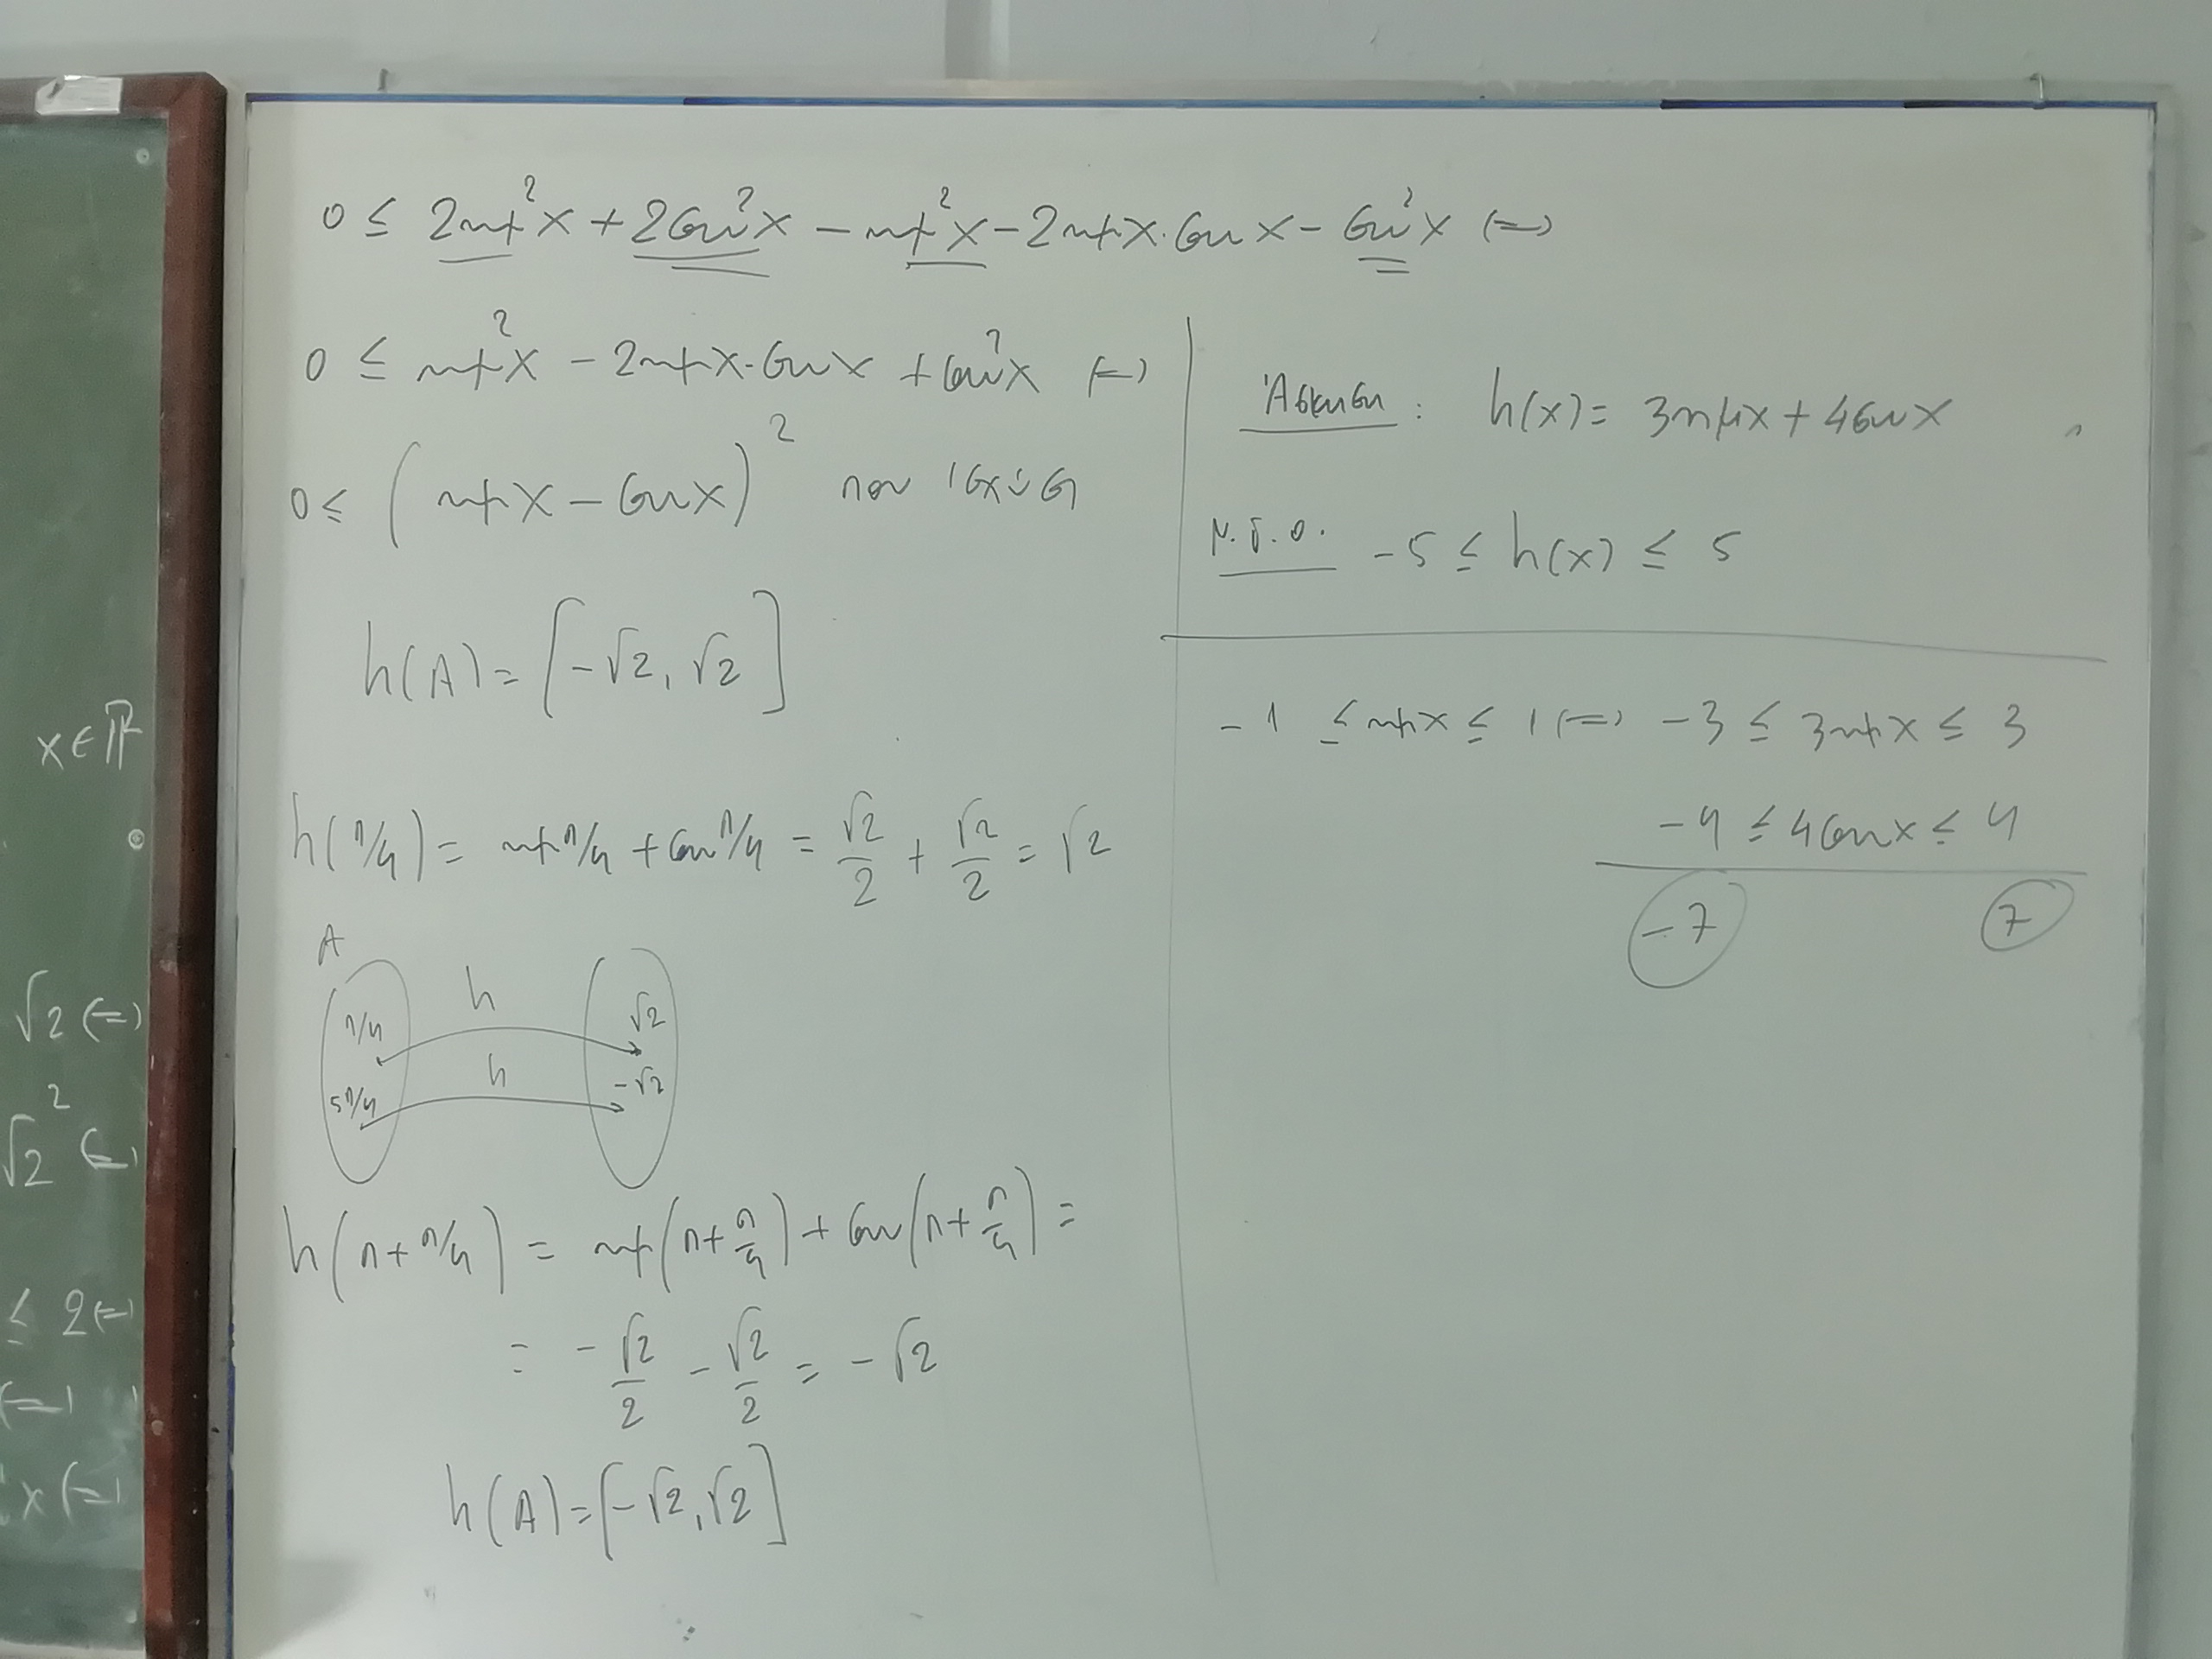 x ∈ ℝ
√2 (=)
√2² (=)
≤ 2 (=)
(=)
x (=)
0 ≤ 2ημ²x + 2συν²x − ημ²x − 2ημx·συνx − συν²x (=)
0 ≤ ημ²x − 2ημx·συνx + συν²x (=)
0 ≤ (ημx − συνx)² που ισχύει
h(A) = [−√2, √2]
h(π/4) = ημπ/4 + συνπ/4 = √2/2 + √2/2 = √2
A
h
π/4 √2
h
5π/4 −√2
h(π + π/4) = ημ(π + π/4) + συν(π + π/4) =
= −√2/2 − √2/2 = −√2
h(A) = [−√2, √2]
Άσκηση : h(x) = 3ημx + 4συνx
Ν.δ.ο. −5 ≤ h(x) ≤ 5
−1 ≤ ημx ≤ 1 (=) −3 ≤ 3ημx ≤ 3
−4 ≤ 4συνx ≤ 4
−7 7